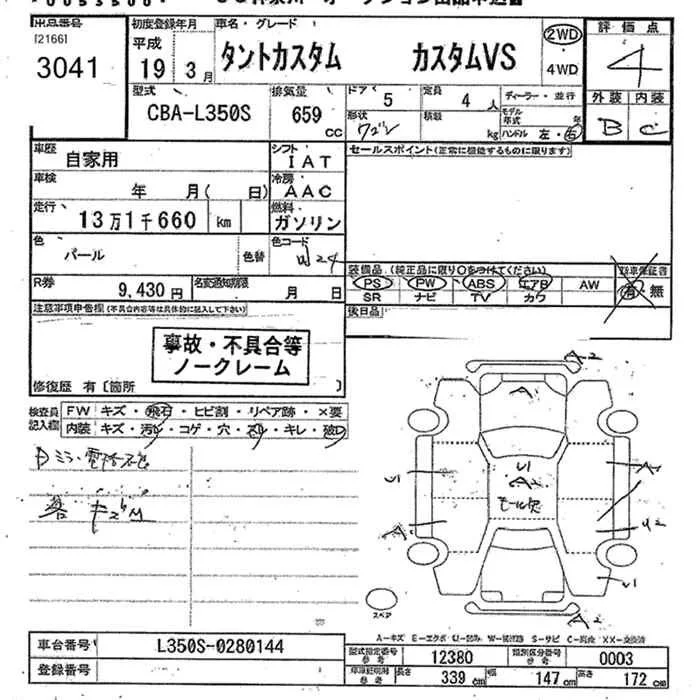 出品番号
[2166]
3041
初度登録年月
平成
19 3月
車名・グレード
タントカスタム カスタムVS
2WD
・
4WD
評価点
4
外装 内装
B C
型式
CBA-L350S
排気量
659
CC
ドア
5
定員
4人
ディーラー・並行
形状
ワゴン
積載
kg
モデル年式
年
ハンドル 左・右
車歴
自家用
シフト
IAT
セールスポイント(正常に機能するものに限ります)
車検
年 月( 日)
冷房
AAC
走行
13万1千660 km
燃料
ガソリン
色
パール
色替
色コード
W24
R券
9,430円
名変通知期限
月 日
装備品(純正品に限り○をつけてください)
PS PW ABS エアB AW
SR ナビ TV カワ
新車保証書
有・無
後日品
注意事項申告欄(不具合内容等は具体的に記入して下さい)
事故・不具合等
ノークレーム
修復歴 有〔箇所 〕
検査員記入欄
FW キズ・飛石・ヒビ割・リペア跡・×要
内装 キズ・汚レ・コゲ・穴・スレ・キレ・破レ
A2
A1
U1
U1
A2
モール欠
A1
U2
U1
A2
スペア
A-キズ E-エクボ U-凹み W-補修跡 S-サビ C-腐食 XX-交換済
車台番号
L350S-0280144
登録番号
型式指定番号
参考
12380
類別区分番号
参考
0003
車庫証明用
参考
長さ
339cm
幅
147cm
高さ
172cm